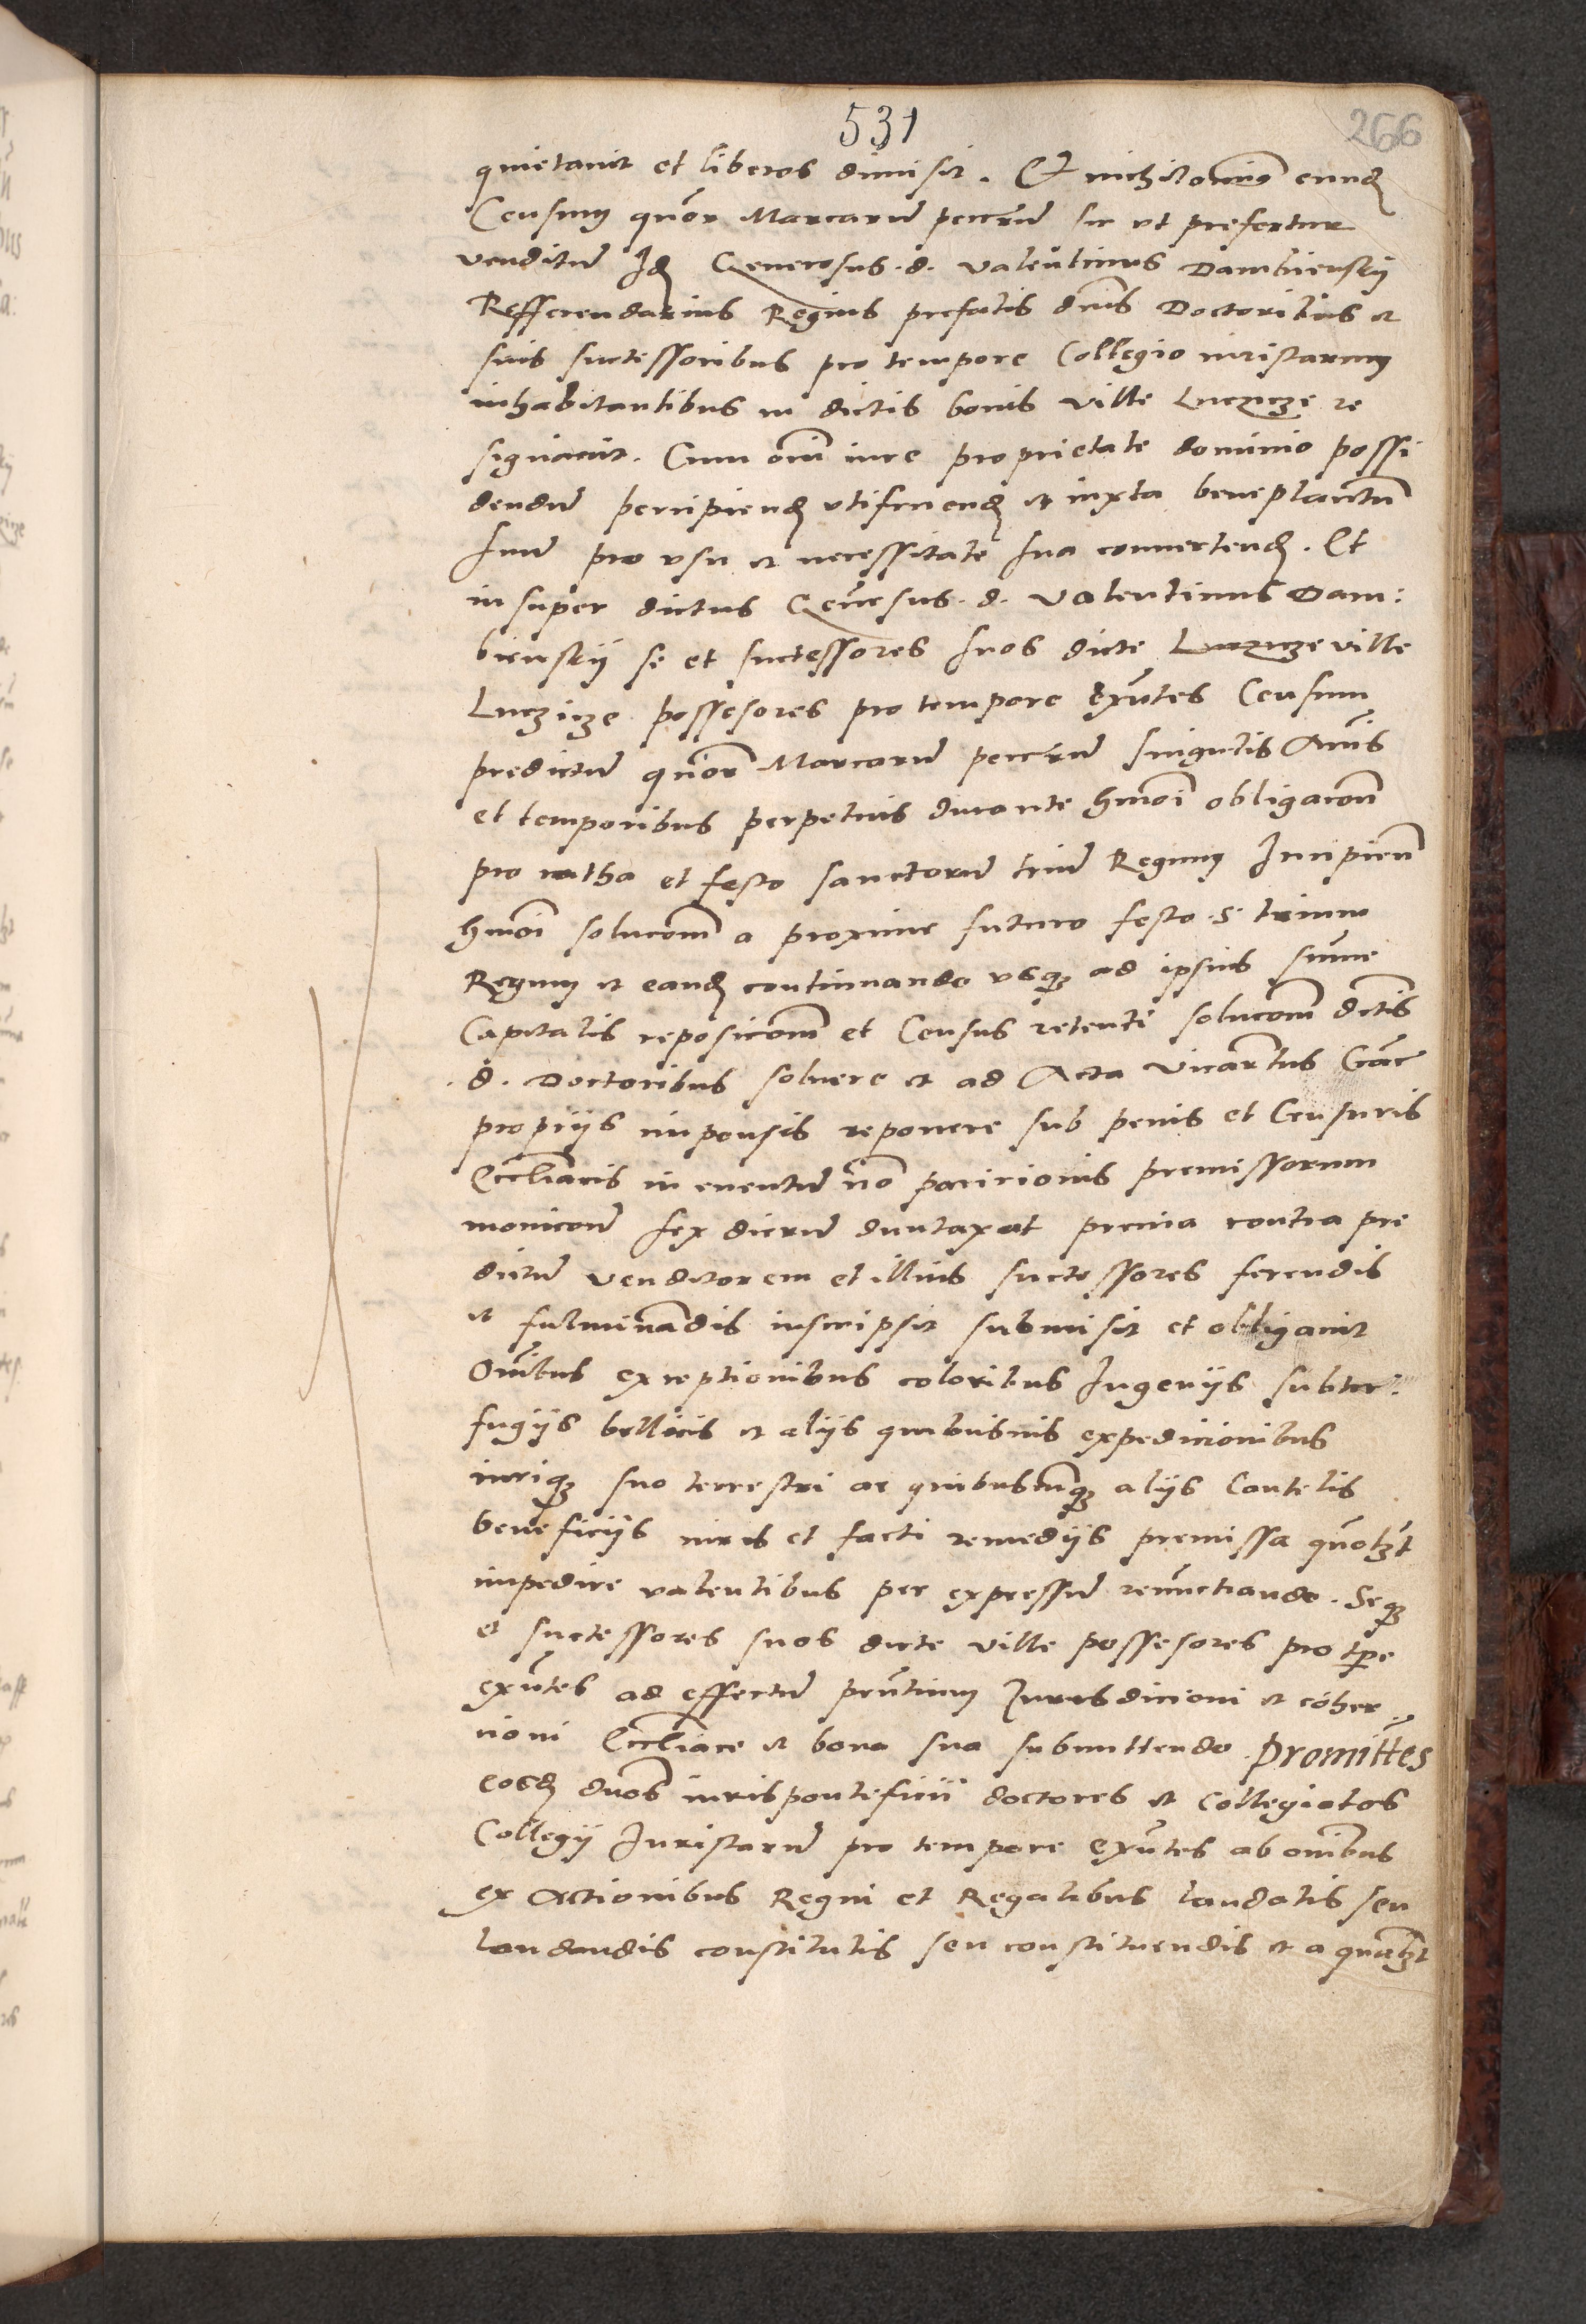 531
266
quietauit et liberos dimisit . Et nichilominꝰ eundꝫ
Censum quor̃ Marcarũ peccrũ sic vt prefertur
venditũ Idꝫ Generosus . d . valentinus Dambienskij
Refferendarius Regius prefatis dnis Doctoribus et
suis suctessoribus pro tempore Collegio iuristarum
inhabitantibus in dictis bonis ville Luczicze re
signauit . Cum omi iure proprietate dominio possi
dendũ percipiendꝫ vtifruendꝫ et iuxta beneplacitũ
suũ pro vsu et necessitate sua conuertendꝫ . Et
insuper dictus Genesus . d . Valentinus Dam:
bienskij se et suctessores suos dicte Luczicze ville
Luczicze possesores pro tempore exñtes Censum
predictũ quor̃ Marcarũ peccrũ singulis Annis
et temporibus perpetuis durante hmoi obligacõm
pro ratha et festo sanctorũ triũ Regum Incipien̄
hmoi solucom̄ a proxime futuro festo . S . trium
Regum et eandꝫ continuando vsqꝫ ad ipsius sum̄e
Capitalis reposicom̄ et Census retenti solucom̄ dctis
. d . Doctoribus soluere et ad Acta vicar̄tus Crac̄
propriis impensis reponere sub penis et Censuris
Eccl̄iacis in euentũ no͞ paricionis premissorum
monicom̄ sex dierũ duntaxat preuia contra pre
dictũ venditorem et illius suctessores ferendis
et fulminãdis inscripsit submisit et obligauit
Om̄ibus exceptionibus coloribus Ingenijs subter:
fugijs bellicis et alijs quibusuis expedicionibus
iuriqꝫ suo terrestri ac quibuscũqꝫ alijs Cautelis
beneficijs iuris et facti remedijs premissa quõlꝫt
impedire valentibus per expressũ renũctiando . Seqꝫ
et suctessores suos dicte ville possesores pro tp̄re
exñtes ad effectũ pñtium Iurisdicioni et cõher
cioni Eccl̄iace et bona sua submittendo . promittẽs
eosdꝫ duos iurispontificii doctores et Collegiatos
Collegij Iuristarũ pro tempore exñtes ab om̄ibus
exactionibus Regni et Regalibus laudatis seu
laudandis constitutis seu constituendis et a qualꝫt